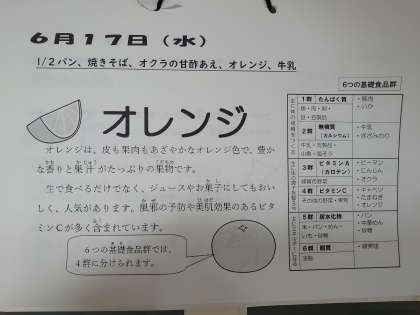 6月17日（水）
1/2パン、焼きそば、オクラの甘酢あえ、オレンジ、牛乳
オレンジ
オレンジは、皮も果肉もあざやかなオレンジ色で、豊か
な香りと果汁がたっぷりの果物です。
生で食べるだけでなく、ジュースやお菓子にしてもおい
しく、人気があります。風邪の予防や美肌効果のあるビタ
ミンCが多く含まれています。
6つの基礎食品群では、
4群に分けられます。
6つの基礎食品群
1群 たんぱく質
魚・肉・卵・
豆・豆製品
・豚肉
・いか
2群 無機質
（カルシウム）
牛乳・乳製品・
小魚・海そう
・牛乳
・きざみのり
3群 ビタミンA
（カロテン）
緑黄色野菜
・ピーマン
・にんじん
・オクラ
4群 ビタミンC
その他の野菜・果物
・キャベツ
・たまねぎ
・オレンジ
5群 炭水化物
米・パン・めん・
いも・砂糖
・パン
・中華めん
・砂糖
6群 脂質
油脂